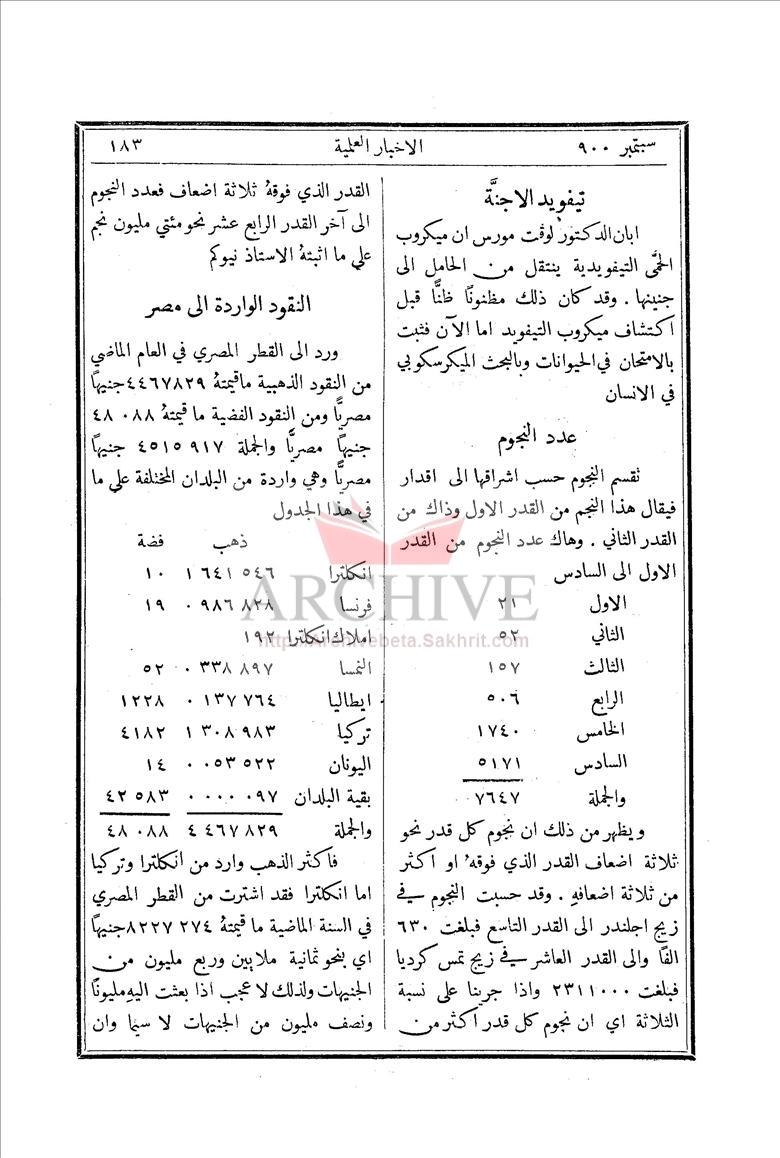 سبتمبر ٩٠٠
الاخبار العلمية
١٨٣
تيفويد الاجنَّة
ابان الدكتور لوڤت مورس ان ميكروب
الحمَّى التيفويدية ينتقل من الحامل الى
جنينها . وقد كان ذلك مظنونًا ظنًّا قبل
اكتشاف ميكروب التيفويد اما الآن فثبت
بالامتحان في الحيوانات وبالبحث الميكرسكوبي
في الانسان
عدد النجوم
تقسم النجوم حسب اشراقها الى اقدار
فيقال هذا النجم من القدر الاول وذاك من
القدر الثاني . وهاك عدد النجوم من القدر
الاول الى السادس
الاول ٢١
الثاني ٥٢
الثالث ١٥٧
الرابع ٥٠٦
الخامس ١٧٤٠
السادس ٥١٧١
والجملة ٧٦٤٧
ويظهر من ذلك ان نجوم كل قدر نحو
ثلاثة اضعاف القدر الذي فوقه او اكثر
من ثلاثة اضعافه . وقد حسبت النجوم في
زيج اجلندر الى القدر التاسع فبلغت ٦٣٠
الفًا والى القدر العاشر في زيج تمس كرديا
فبلغت ٢٣١١٠٠٠ واذا جرينا على نسبة
الثلاثة اي ان نجوم كل قدر اكثر من
القدر الذي فوقهُ ثلاثة اضعاف فعدد النجوم
الى آخر القدر الرابع عشر نحو مئتي مليون نجم
على ما اثبتهُ الاستاذ نيوكم
النقود الواردة الى مصر
ورد الى القطر المصري في العام الماضي
من النقود الذهبية ما قيمتهُ ٤٤٦٧٨٢٩ جنيهًا
مصريًّا ومن النقود الفضية ما قيمتهُ ٤٨٠٨٨
جنيهًا مصريًّا والجملة ٤٥١٥٩١٧ جنيهًا
مصريًّا وهي واردة من البلدان المختلفة على ما
في هذا الجدول
ذهب فضة
انكلترا ١٦٤١٥٤٦ ١٠
فرنسا ٠٩٨٦٨٢٨ ١٩
املاك انكلترا ١٩٢
النمسا ٠٣٣٨٨٩٧ ٥٢
ايطاليا ٠١٣٧٧٦٤ ١٢٢٨
تركيا ١٣٠٨٩٨٣ ٤١٨٢
اليونان ٠٠٥٣٥٢٢ ١٤
بقية البلدان ٠٠٠٠٠٩٧ ٤٢٥٨٣
والجملة ٤٤٦٧٨٢٩ ٤٨٠٨٨
فاكثر الذهب وارد من انكلترا وتركيا
اما انكلترا فقد اشترت من القطر المصري
في السنة الماضية ما قيمتهُ ٨٢٢٧٢٧٤ جنيهًا
اي بنحو ثمانية ملايين وربع مليون من
الجنيهات ولذلك لا عجب اذا بعثت اليه مليونًا
ونصف مليون من الجنيهات لا سيما وان
ARCHIVE
http://Archivebeta.Sakhrit.com